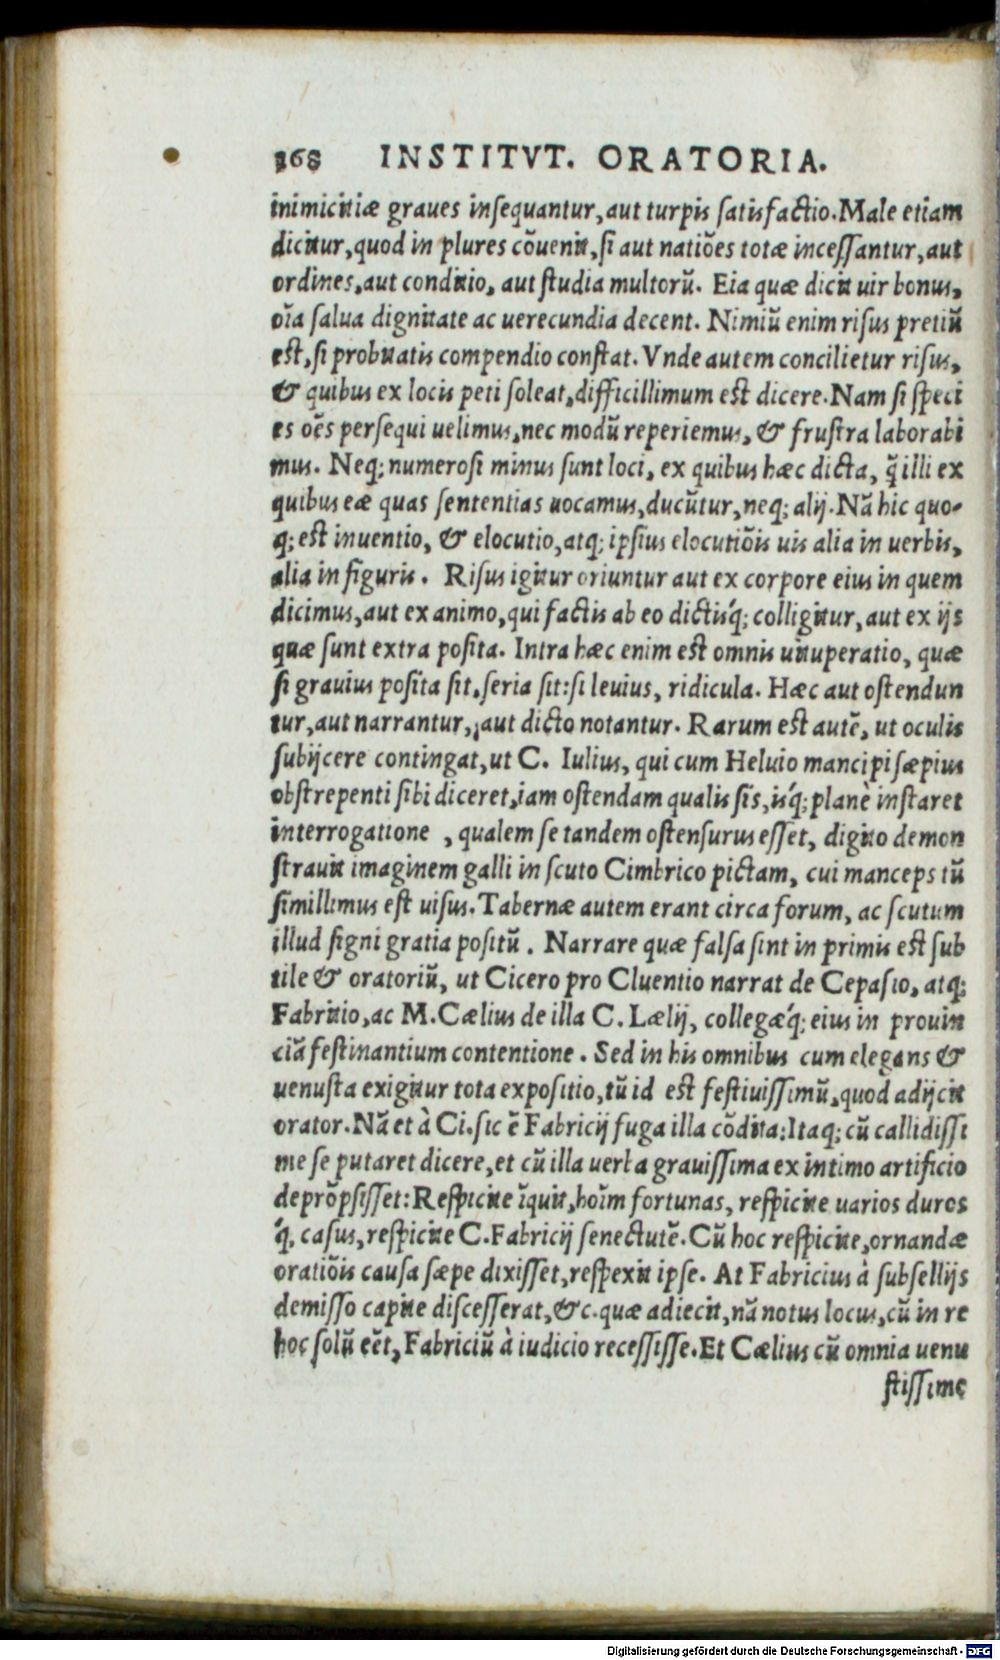 368 INSTITVT. ORATORIA.
inimicitiæ graues insequantur, aut turpis satisfactio. Male etiam
dicitur, quod in plures cõuenit, si aut natiões totæ incessantur, aut
ordines, aut conditio, aut studia multorũ. Eia quæ dicit uir bonus,
oĩa salua dignitate ac uerecundia decent. Nimiũ enim risus pretiũ
est, si probitatis compendio constat. Vnde autem concilietur risus,
& quibus ex locis peti soleat, difficillimum est dicere. Nam si speci
es oẽs persequi uelimus, nec modũ reperiemus, & frustra laborabi
mus. Neq; numerosi minus sunt loci, ex quibus hæc dicta, q̃ illi ex
quibus eæ quas sententias uocamus, ducũtur, neq; alij. Nã hic quo-
q; est inuentio, & elocutio, atq; ipsius elocutiõis uis alia in uerbis,
alia in figuris. Risus igitur oriuntur aut ex corpore eius in quem
dicimus, aut ex animo, qui factis ab eo dictisq́; colligitur, aut ex ijs
quæ sunt extra posita. Intra hæc enim est omnis uituperatio, quæ
si grauius posita sit, seria sit: si leuius, ridicula. Hæc aut ostendun
tur, aut narrantur, aut dicto notantur. Rarum est autẽ, ut oculis
subijcere contingat, ut C. Iulius, qui cum Heluio mancipi sæpius
obstrepenti sibi diceret, iam ostendam qualis sis, isq́; planè instaret
interrogatione , qualem se tandem ostensurus esset, digito demon
strauit imaginem galli in scuto Cimbrico pictam, cui manceps tũ
simillimus est uisus. Tabernæ autem erant circa forum, ac scutum
illud signi gratia positũ. Narrare quæ falsa sint in primis est sub
tile & oratoriũ, ut Cicero pro Cluentio narrat de Cepasio, atq;
Fabritio, ac M. Cælius de illa C. Lælij, collegæq́; eius in prouin
ciã festinantium contentione. Sed in his omnibus cum elegans &
uenusta exigitur tota expositio, tũ id est festiuissimũ, quod adijcit
orator. Nã et à Ci. sic ẽ Fabricij fuga illa cõdita: Itaq; cũ callidissi
me se putaret dicere, et cũ illa uerba grauissima ex intimo artificio
deprõpsisset: Respicite ĩquit, hoĩm fortunas, respicite uarios duros
q́, casus, respicite C. Fabricij senectutẽ. Cũ hoc respicite, ornandæ
oratiõis causa sæpe dixisset, respexit ipse. At Fabricius à subsellijs
demisso capite discesserat, &c. quæ adiecit, nã notus locus, cũ in re
hoc solũ eẽt, Fabriciũ à iudicio recessisse. Et Cælius cũ omnia uenu
stissime
Digitalisierung gefördert durch die Deutsche Forschungsgemeinschaft - DFG